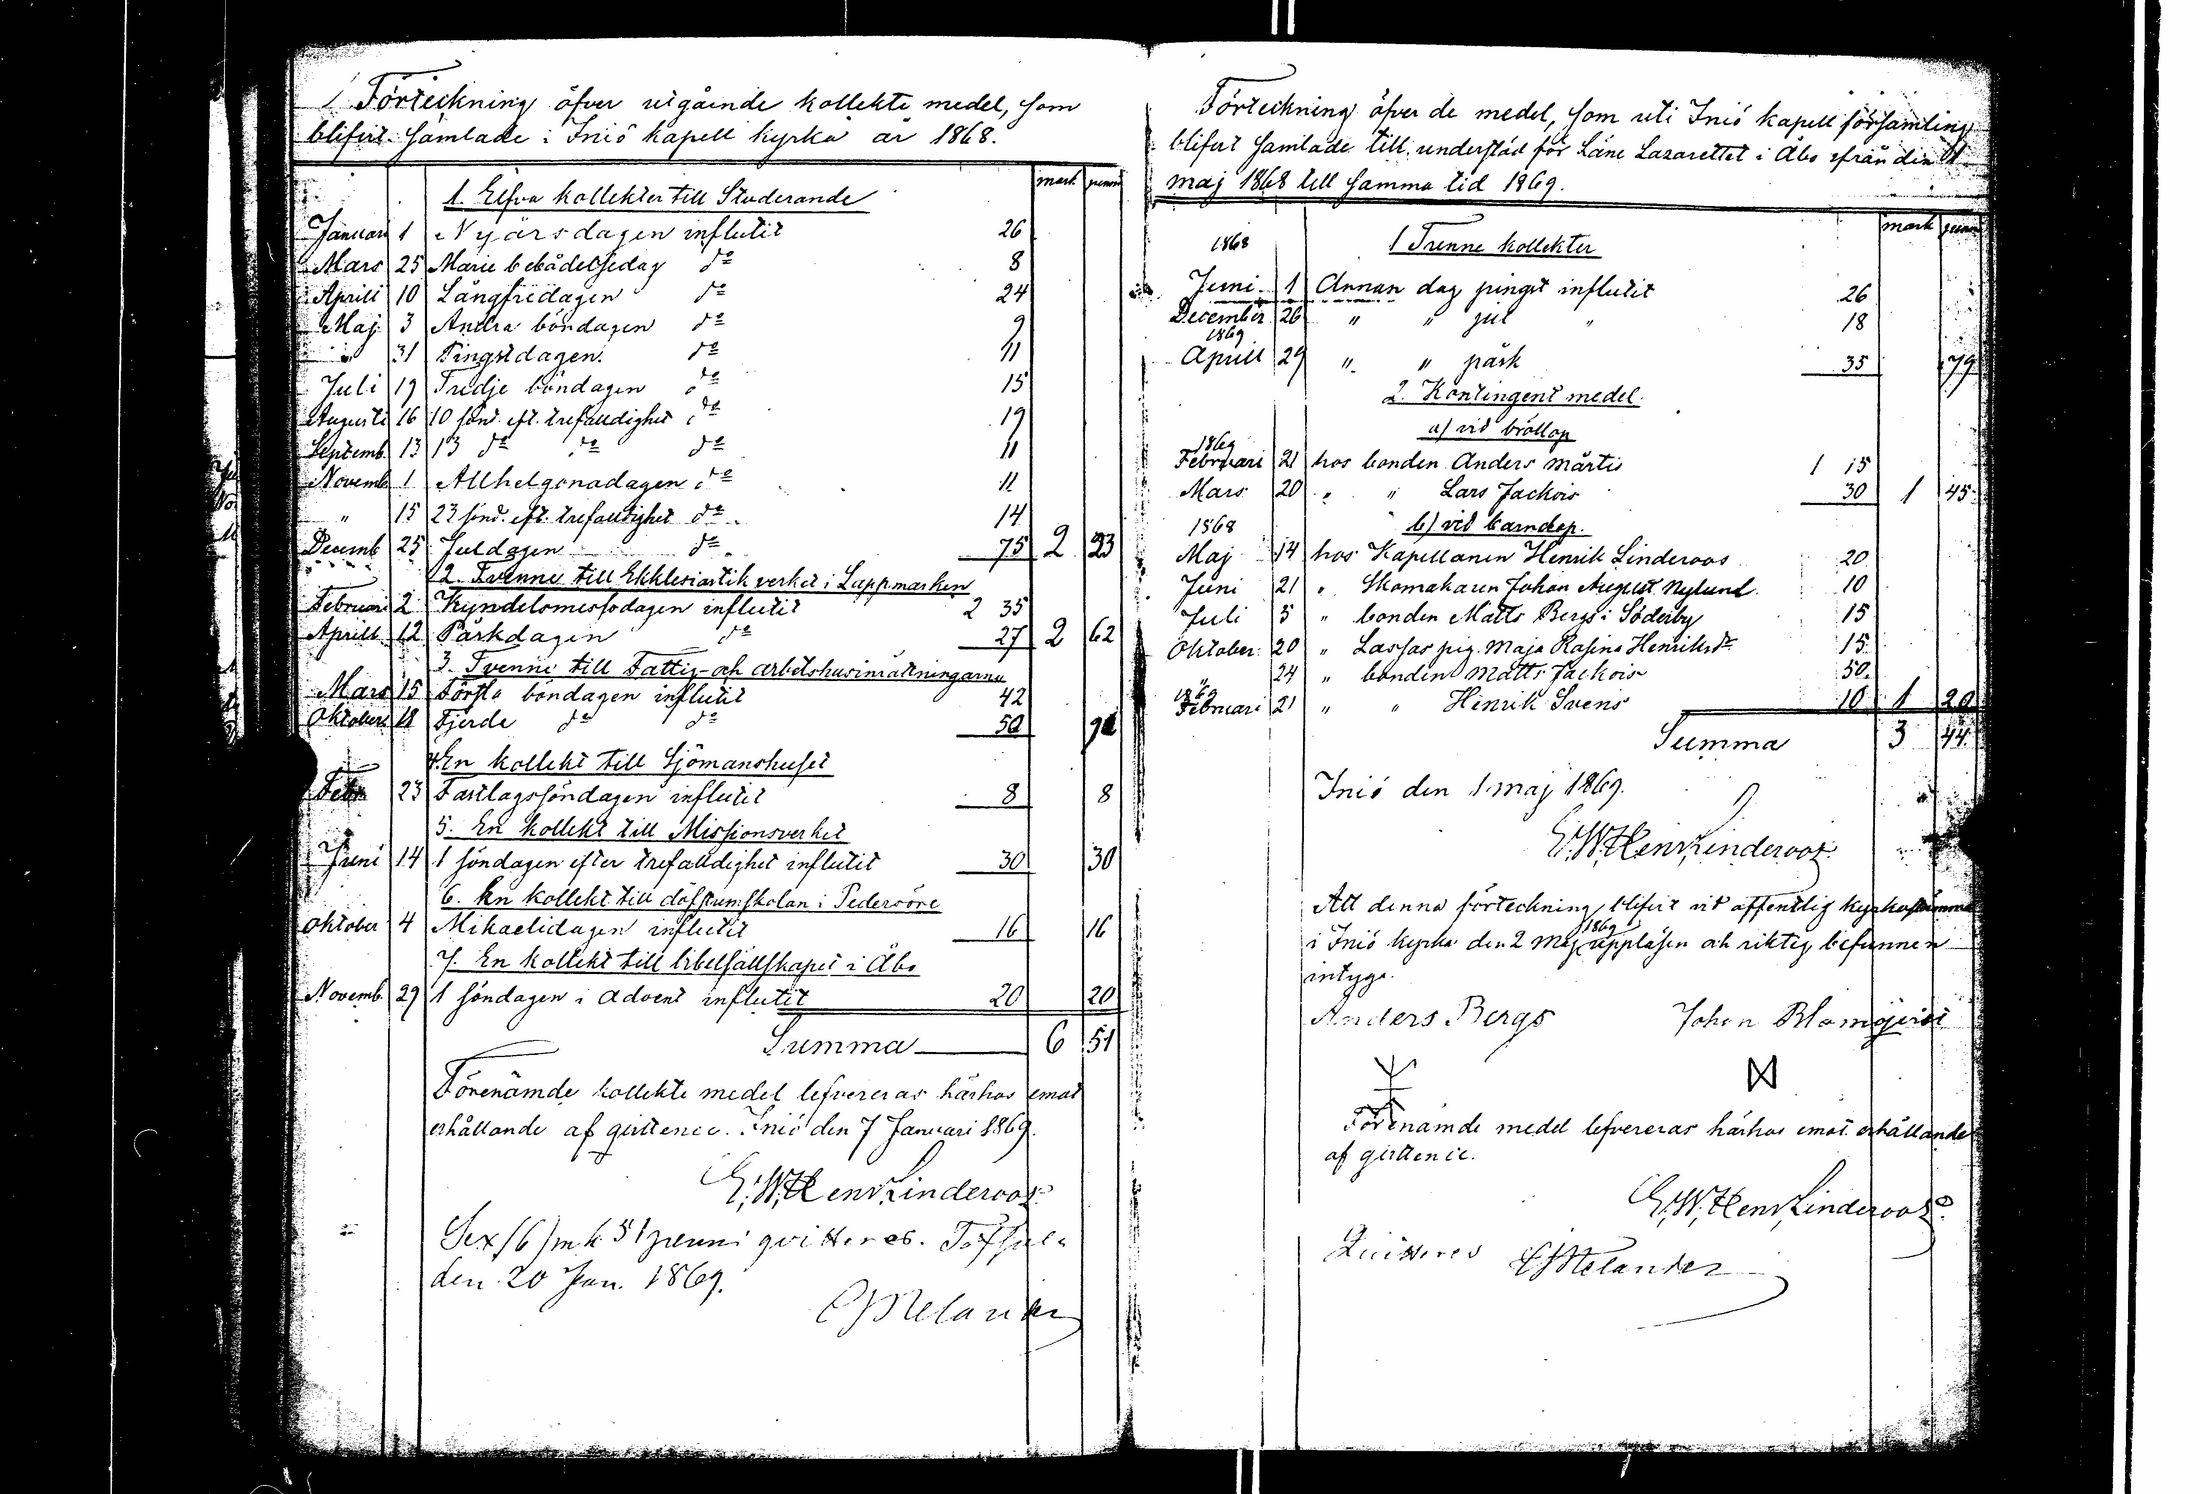 Förteckning öfver utgående kollekte medel, som
blifvit samlade i Iniö kapell kyrka år 1868.
mark penni
1. Elfva kollekter till Studerande
Januari 1 Nyårsdagen influtit 26
Mars 25 Marie bebådelsedag do 8
Aprill 10 Långfredagen do 24
Maj 3 Andra böndagen do 9
" 31 Pingstdagen do 11
Juli 19 Tredje böndagen do 15
Augusti 16 10 sönd. eft. trefaldighet do 19
Septemb. 13 13 do do do 11
Novemb. 1 Allhelgonadagen do 11
" 15 23 sönd. eft. trefaldighet do 14
Decemb 25 Juldagen do 75 2 23
2. Tvenne till Ekklesiastik verket i Lappmarken
Februari 2 Kyndelsmessodagen influtit 2 35
Aprill 12 Påskdagen do 27 2 62
3. Tvenne till Fattig- och arbetshusinrättningarna
Mars 15 Första böndagen influtit 42
Oktober 18 Fjerde do do 50 92
4. En kollekt till Sjömanshuset
Febr 23 Fastlagssöndagen influtit 8 8
5. En kollekt till Missionsverket
Juni 14 1 söndagen efter trefaldighet influtit 30 30
6. En kollekt till döfstumskolan i Pedersöre
Oktober 4 Mikaelidagen influtit 16 16
7. En kollekt till bibelsällskapet i Åbo
Novemb. 29 1 söndagen i Advent influtit 20 20
Summa 6 51
Förenämde kollekte medel lefvereras härhos emot
erhållande af qvittence. Iniö den 7 Januari 1869.
G.W.Henr.Linderoos.
Sex (6) mk 51 penni qvitteras. Töfsala
den 20 Jan. 1869.
Melander
Förteckning öfver de medel, som uti Iniö kapell församling
blifvit samlade till understöd för Läne Lazarettet i Åbo ifrån den 1
maj 1868 till samma tid 1869.
mark penni
1868 1 Trenne kollekter
Juni 1 Annan dag pingst influtit 26
December 26 " " jul " 18
1869
Aprill 29 " " påsk 35 79
2. Kontingent medel.
a) vid bröllop
1869
Februari 21 hos bonden Anders Mårtis 1 15
Mars 20 " " Lars Jackois 30 1 45
1868 b) vid barndop.
Maj 14 hos Kapellanen Henrik Linderoos 20
Juni 21 " Skomakaren Johan August Nylund 10
Juli 5 " bonden Matts Bergs i Söderby 15
Oktober 20 " Lassas pig. Maja Rasina Henriksdr 15
" 24 " bonden Matts Jackois 50
1869
Februari 21 " " Henrik Svens 10 1 20
Summa 3 44
Iniö den 1 maj 1869.
G.W.Henr.Linderoos.
Att denna förteckning blifvit vid offentlig kyrkostämma
i Iniö kyrka den 2 Maj 1869 uppläsen och riktig befunnen
intyga.
Anders Bergs Johan Blomqvist
Förenämde medel lefvereras härhos emot erhållande
af qvittence.
G.W.Henr.Linderoos.
Quitteres Melander